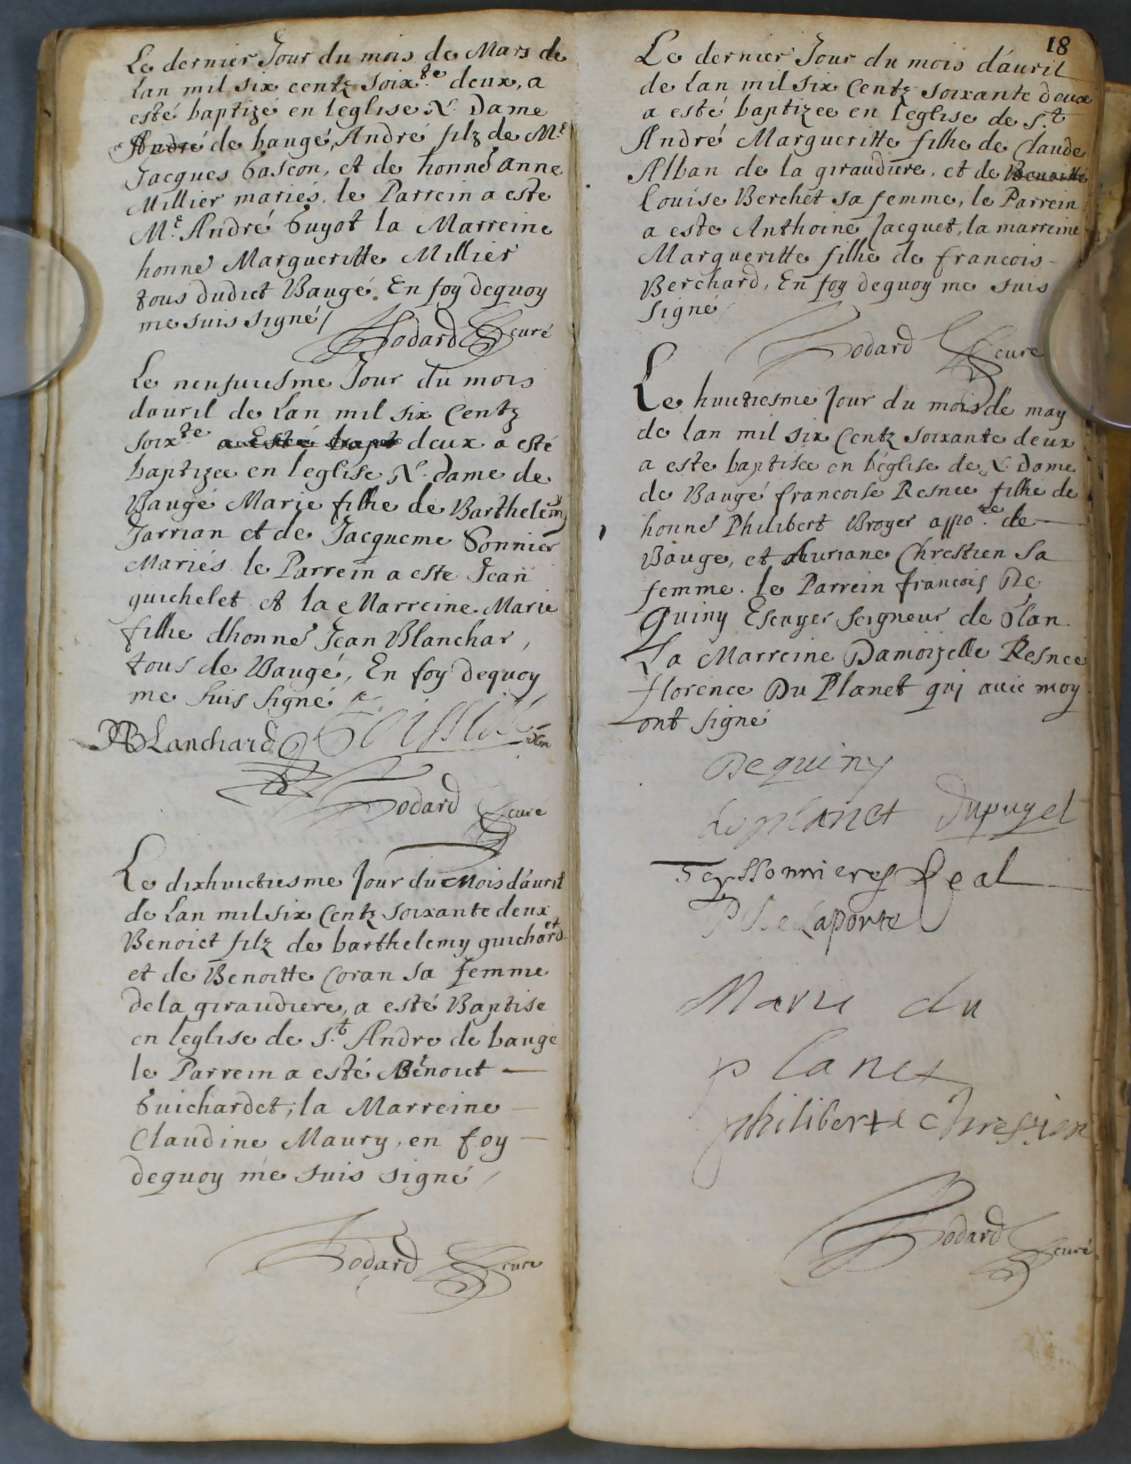 Le dernier Jour du mois de Mars de
Lan mil six centz soix.te deux, a
esté baptizé en leglise N. Dame
André de baugé, André filz de M.e
Jacques Gascon, et de honne Anne
Millier mariés. le Parrein a este
M.e André Guyot la Marreine
honne Margueritte Millier
tous dudict Baugé. En foy dequoy
me suis signé /
Godard curé
Le neufuiesme Jour du mois
dauril de Lan mil six Centz
soix.te a Esté bapt deux a esté
baptizee en leglise N. dame de
Baugé Marie filhe de Barthelemy
Jarrian et de Jacqueme Bonnier
Mariés le Parrein a este Jean
guichelet et la Marreine Marie
filhe dhonne Jean Blanchar,
tous de Baugé, En foy dequoy
me suis signé
JBLanchard
Godard cure
Le dixhuictiesme Jour du Mois dauril
de Lan mil six Centz soixante deux
Benoict filz de barthelemy guichardet
et de Benoitte Coran sa femme
dela giraudiere, a esté Baptise
en leglise de S.t Andre de bauge
le Parrein a esté Benoict
Guichardet; la Marreine
Claudine Maury, en foy
dequoy me suis signé /
Godard cure
18
Le dernier Jour du mois dauril
de lan mil six Centz soixante deux
a esté baptizee en Leglise de S.t
André Margueritte filhe de Claude
Alban de la giraudiere, et de Benoitte
Louise Berchet sa femme, le Parrein
a este Anthoine Jacquet, la marreine
Margueritte filhe de francois
Berchard, En foy dequoy me suis
signé
Godard cure
Le huictiesme Jour du mois de may
de lan mil six Centz soixante deux
a este baptisée en l'église de N. Dame
de Baugé francoise Resnee filhe de
honne Philibert Broyer appo.re de
Bauge, et Auriane Chrestien sa
femme. le Parrein francois De
Quiny Escuyer seigneur de
La Marreine Damoizelle Resnee
florence Du Planet qui auec moy
ont signé
Dequiny
duplanet Dupuget
Feyssonnieres Real
Delaporte
Marie du
planet
philiberte chrestien
Godard curé